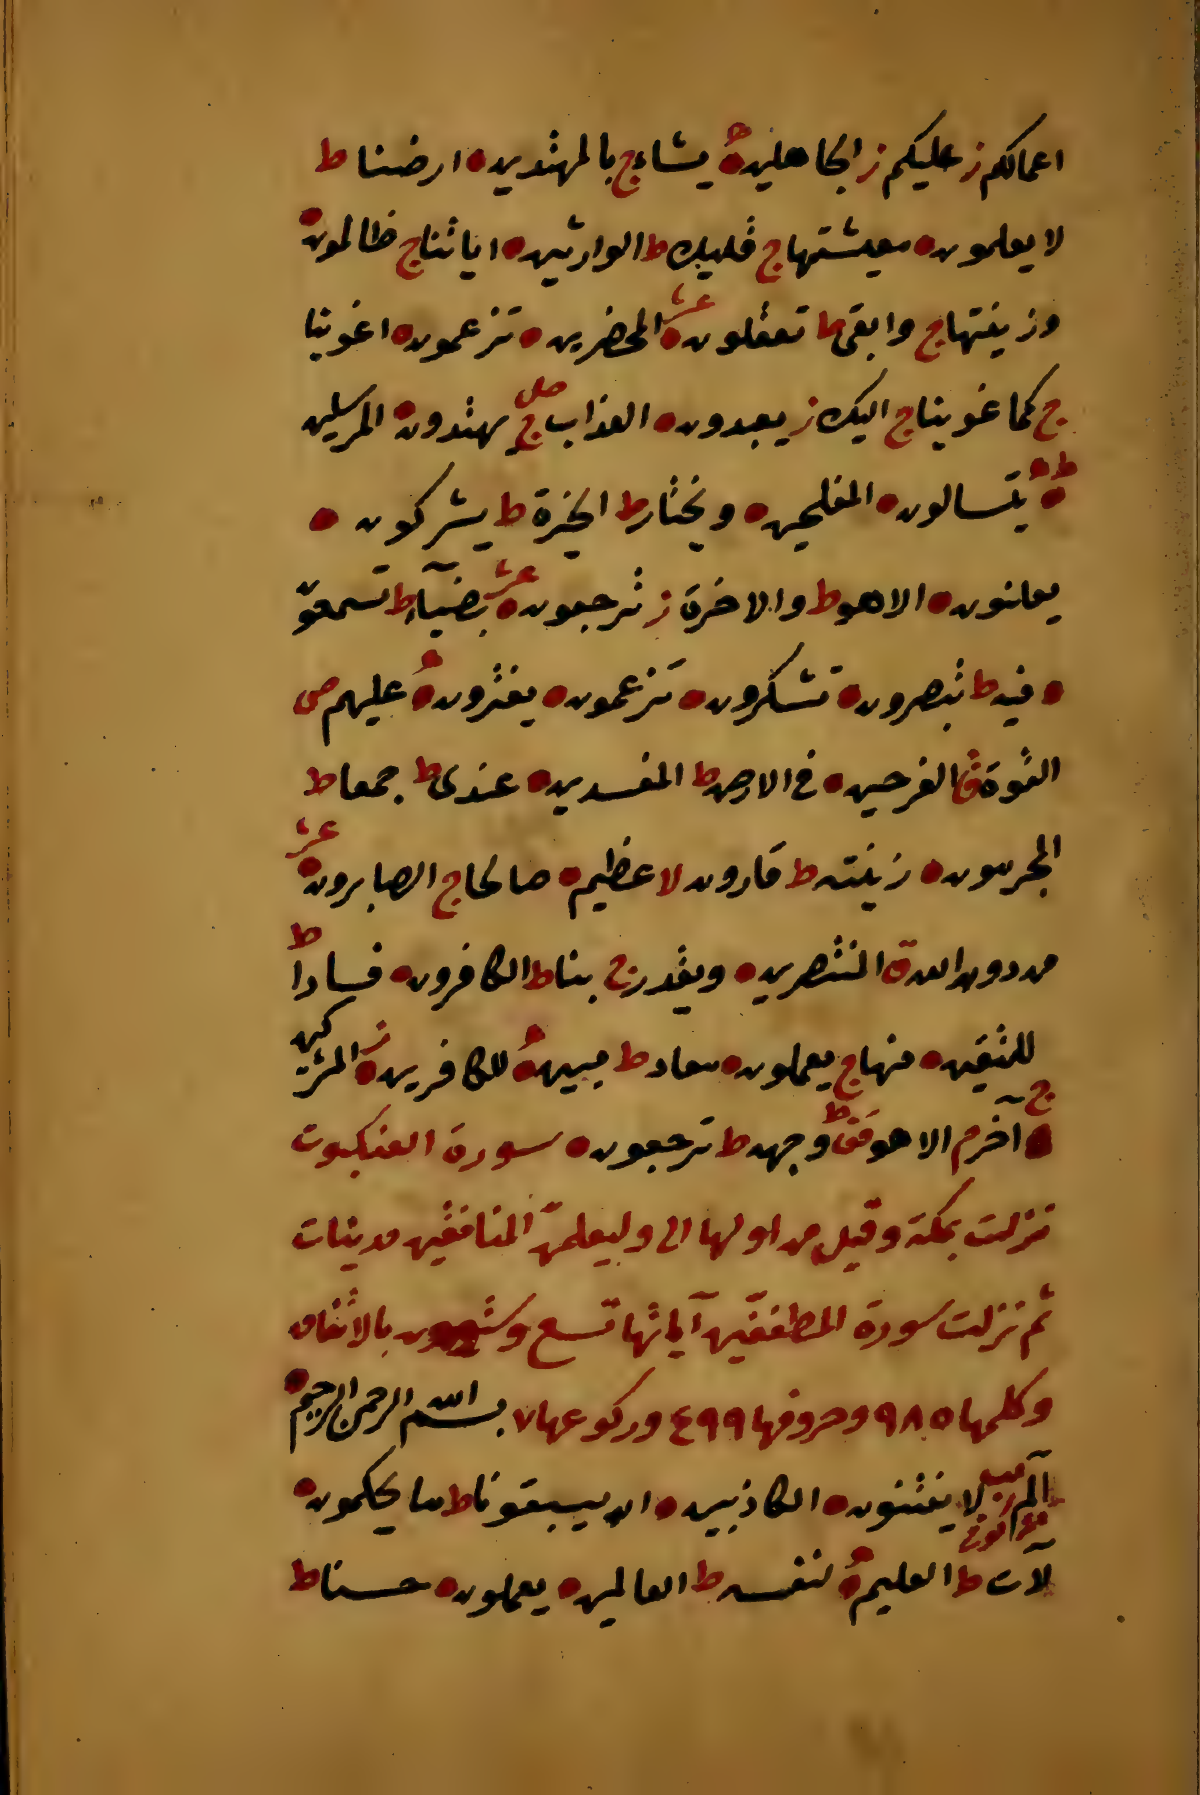 اعمالكم ز عليكم ز الجاهلين ه ط يشاء ج بالمهتدين ه ارضنا ط
لا يعلمون ه معيشتها ج قليلا ط الوارثين ه اياتنا ج ظالمون ه
وزينتها ج وابقى ط تعقلون ه عشر المحضرين ه تزعمون ه اغوينا
ج كما غوينا ج اليك ز يعبدون ه العذاب ج صلى يهتدون ه المرسلين
ه ط يتسالون ه المفلحين ه ويختار ط الخيرة ط يشركون ه
يعلنون ه الا هو ط والاخرة ز ترجعون ه عشر بضيآء ط تسمعون
ه فيه ط تبصرون ه تشكرون ه تزعمون ه يفترون ه ع عليهم ص
القوة ق الفرحين ه في الارض ط المفسدين ه عندى ط جمعا ط
المجرمون ه زينته ط قارون لا عظيم ه صالحا ج الصابرون ه عشر
من دون الله ق المنتصرين ه ويقدر ج بنا ط الكافرون ه فسادا ط
للمتقين ه منها ج يعملون ه معاد ط مبين ه للكافرين ه ز المشركين
ه ج آخر م الا هو قف ط وجهه ط ترجعون ه سورة العنكبوت
نزلت بمكة وقيل من اولها الى وليعلمن المنافقين مدينات
ثم نزلت سورة المطففين آياتها تسع وستون بالاتفاق
وكلمها ٩٨٥ وحروفها ٤٩٩ وركوعها ٧ بسم الله الرحمن الرحيم ه
الم لا يفتنون ه الكاذبين ه ان يسبقونا ط ما يحكمون ه
لآت ط العليم ه لنفسه ط العالمين ه يعملون ه حسنا ط